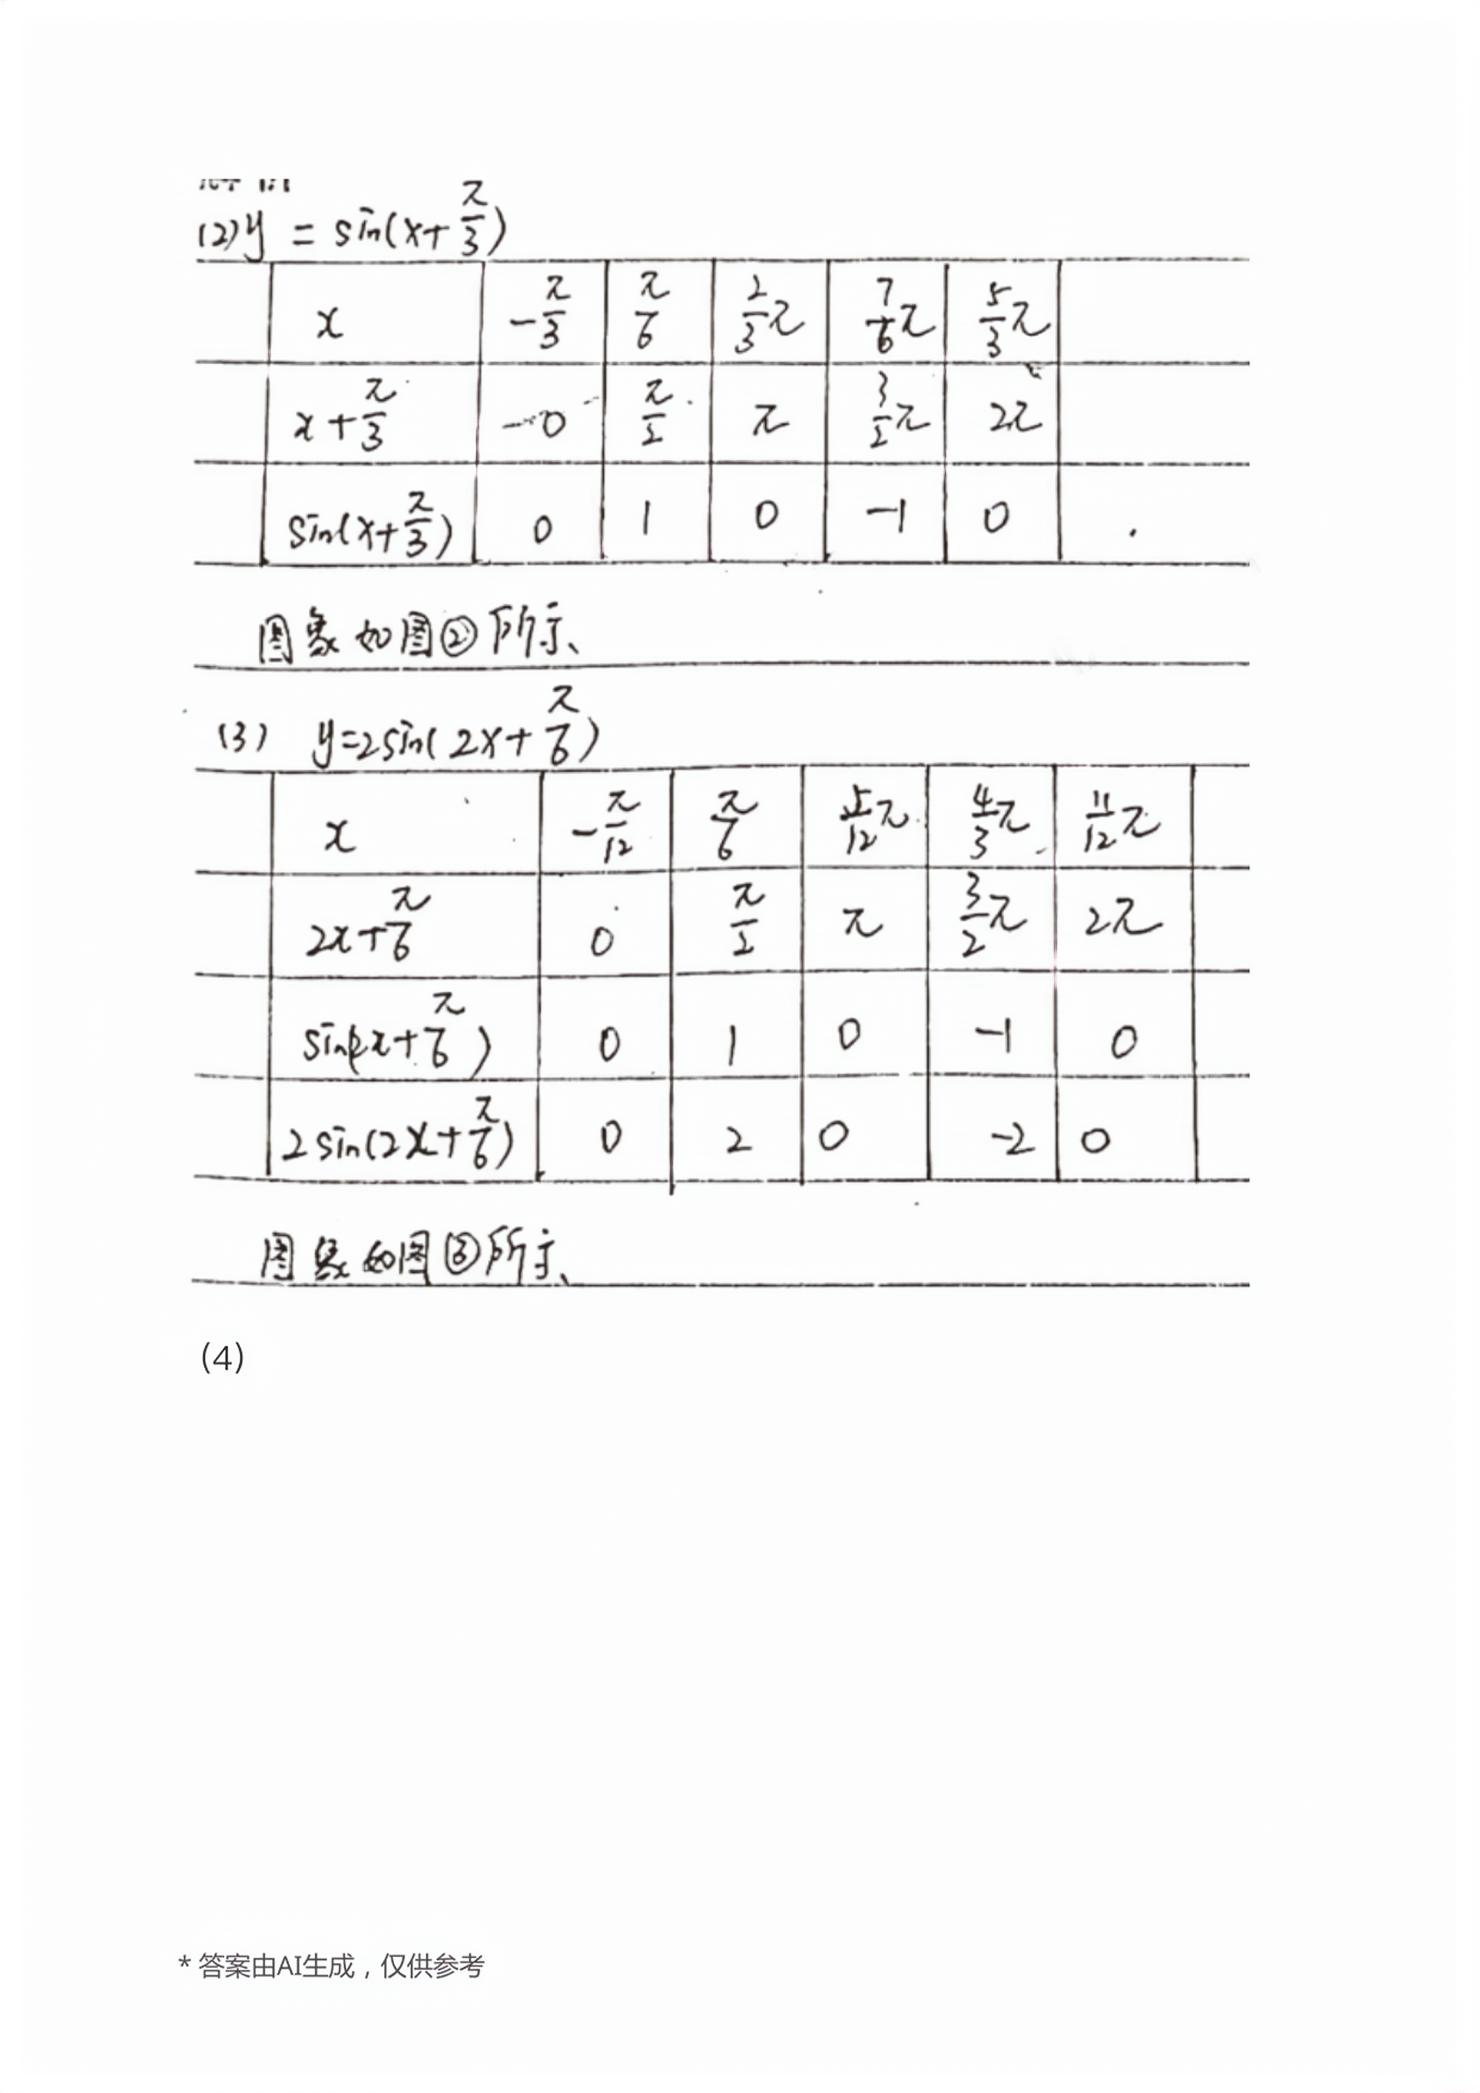 (2) y = sin(x+π/3)
x -π/3 π/6 2/3π 7/6π 5/3π
x+π/3 0 π/2 π 3/2π 2π
sin(x+π/3) 0 1 0 -1 0
图象如图②所示、
(3) y=2sin(2x+π/6)
x -π/12 π/6 5/12π 4/3π 11/12π
2x+π/6 0 π/2 π 3/2π 2π
sin(2x+π/6) 0 1 0 -1 0
2sin(2x+π/6) 0 2 0 -2 0
图象如图③所示、
(4)
* 答案由AI生成，仅供参考